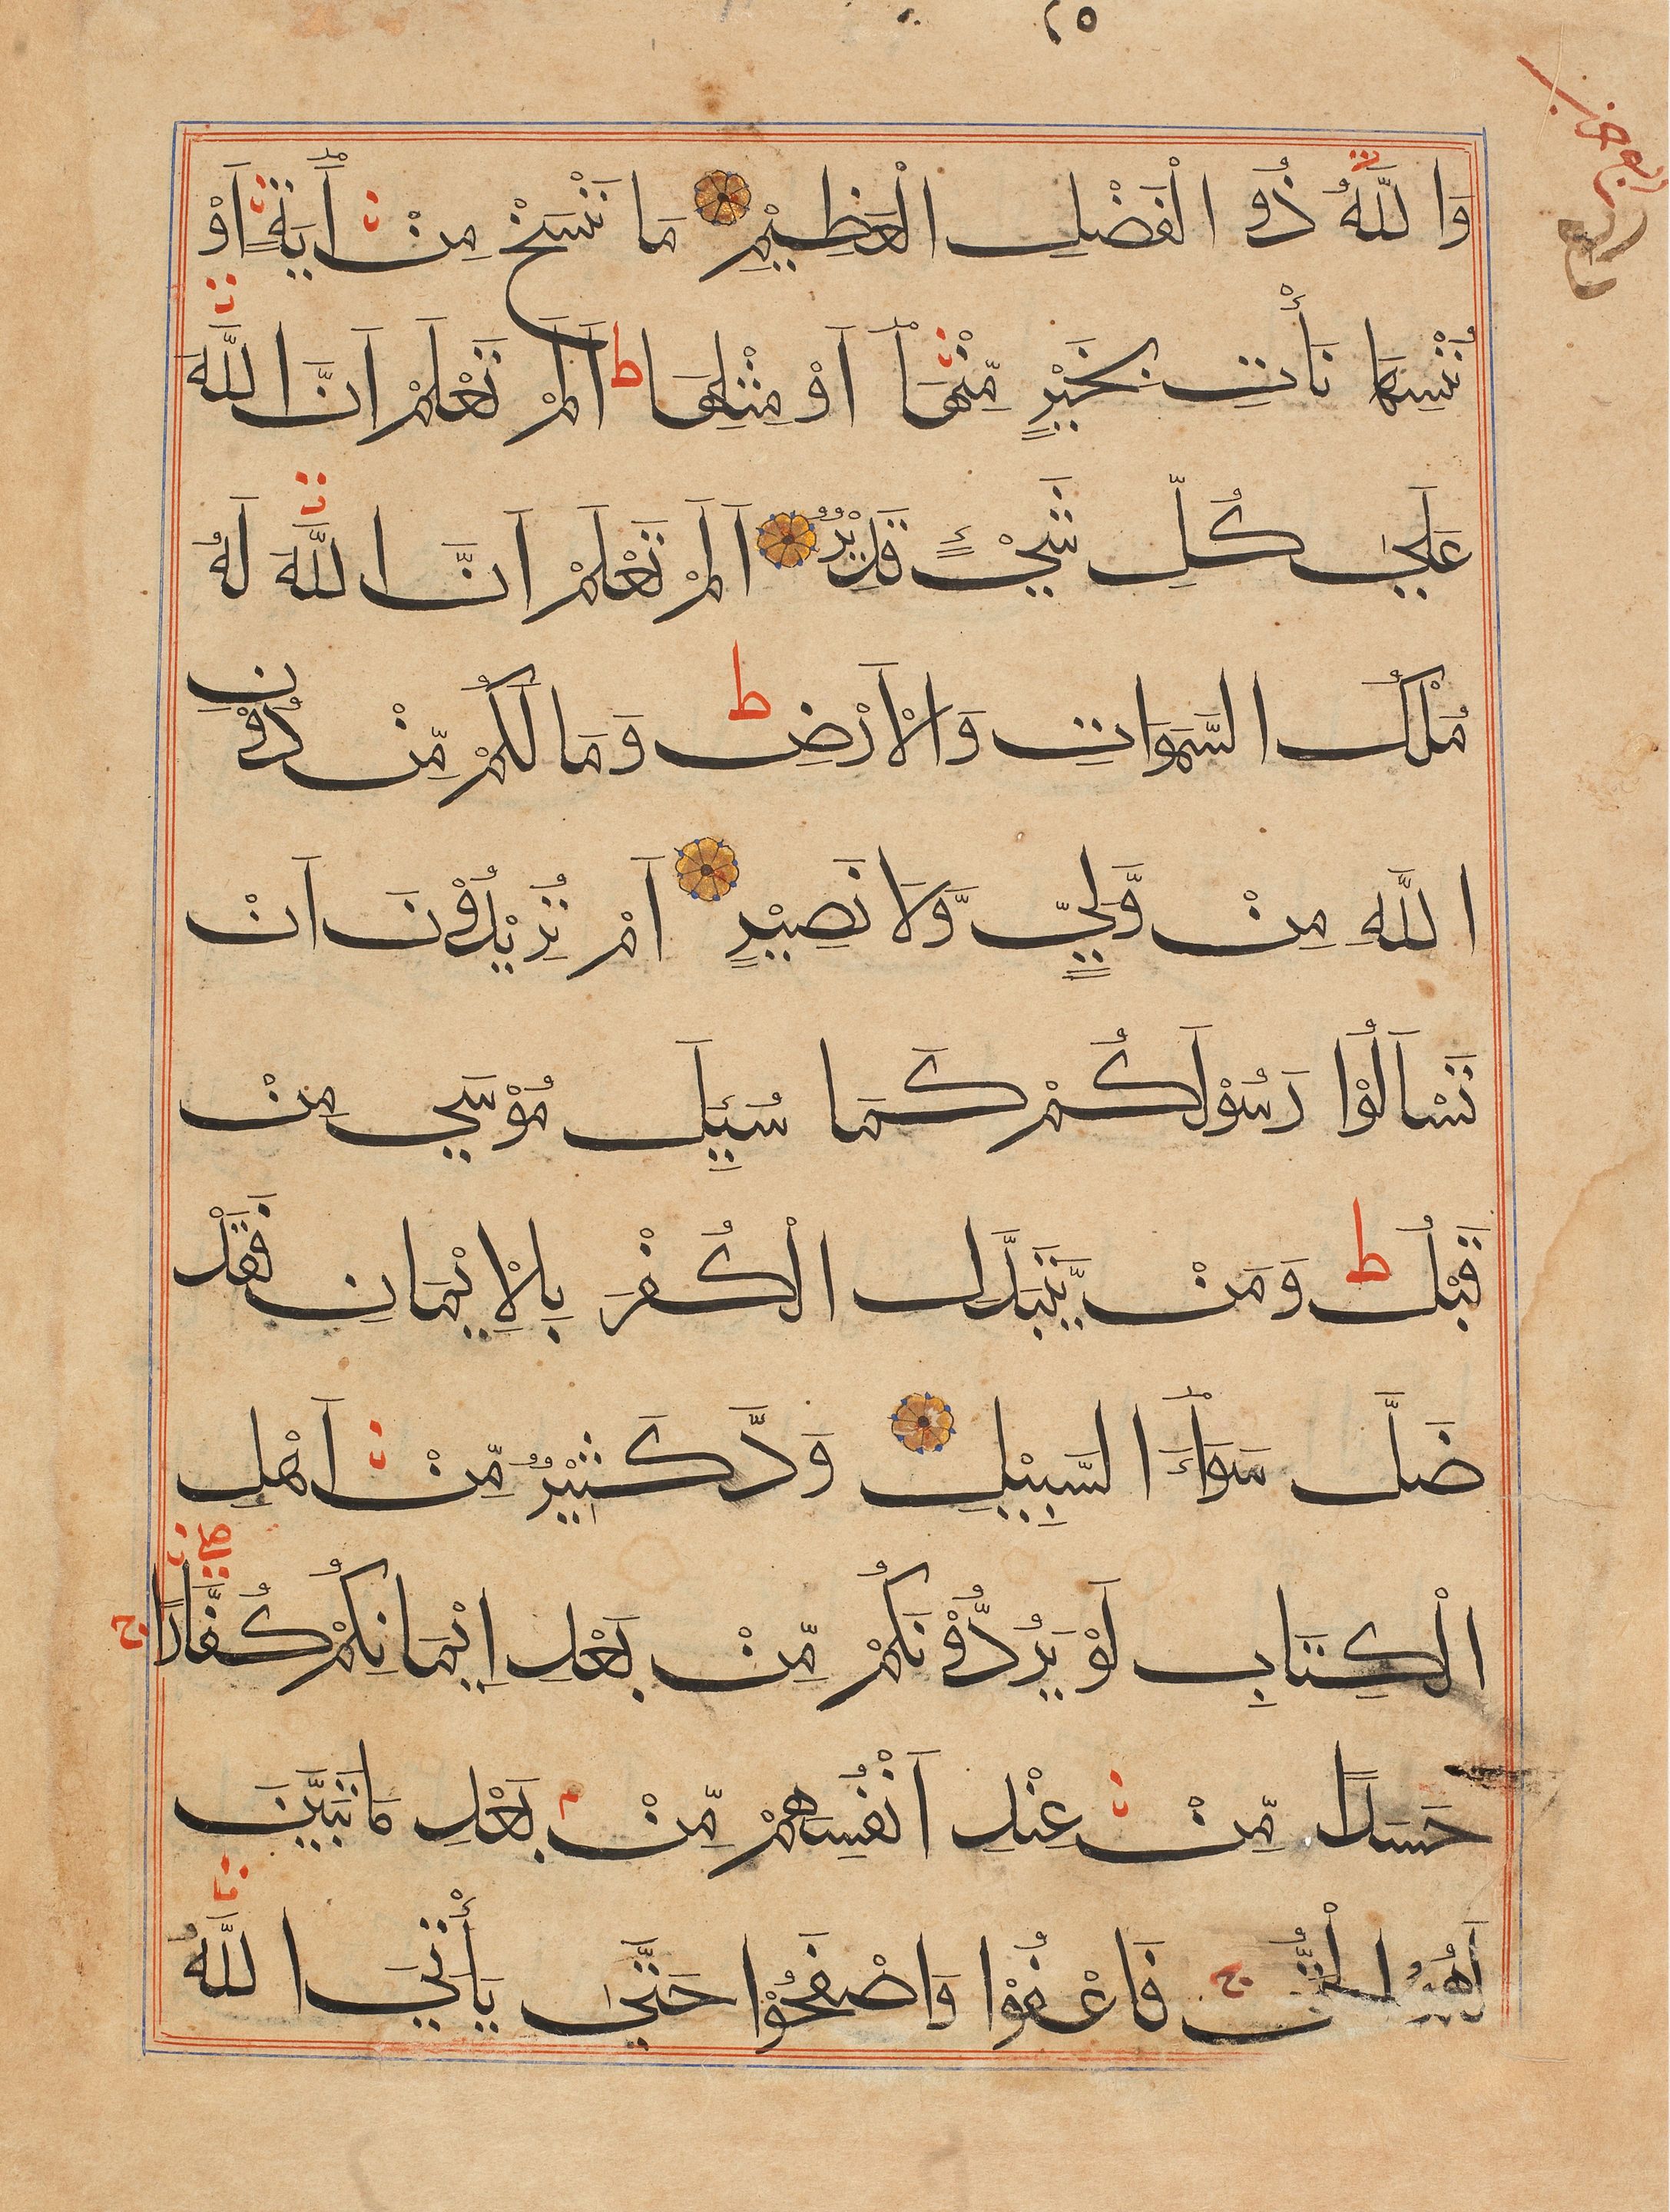 ٢٥
وَاللّٰهُ ذُو الْفَضْلِ الْعَظِيْمِ مَا نَنْسَخْ مِنْ اٰيَةٍ اَوْ
نُنْسِهَا نَأْتِ بِخَيْرٍ مِّنْهَآ اَوْ مِثْلِهَا ط اَلَمْ تَعْلَمْ اَنَّ اللّٰهَ
عَلٰي كُلِّ شَيْءٍ قَدِيْرٌ اَلَمْ تَعْلَمْ اَنَّ اللّٰهَ لَهُ
مُلْكُ السَّمَوَاتِ وَالْاَرْضِ ط وَمَا لَكُمْ مِّنْ دُوْنِ
اللّٰهِ مِنْ وَّلِيٍّ وَّلَا نَصِيْرٍ اَمْ تُرِيْدُوْنَ اَنْ
تَسْاَلُوْا رَسُوْلَكُمْ كَمَا سُئِلَ مُوْسَي مِنْ
قَبْلُ ط وَمَنْ يَّتَبَدَّلِ الْكُفْرَ بِالْاِيْمَانِ فَقَدْ
ضَلَّ سَوَآءَ السَّبِيْلِ وَدَّ كَثِيْرٌ مِّنْ اَهْلِ
الْكِتَابِ لَوْ يَرُدُّوْنَكُمْ مِّنْ بَعْدِ اِيْمَانِكُمْ كُفَّارًا ج
حَسَدًا مِّنْ عِنْدِ اَنْفُسِهِمْ مِّنْ بَعْدِ مَا تَبَيَّنَ
لَهُمُ الْحَقُّ ج فَاعْفُوْا وَاصْفَحُوْا حَتّٰي يَأْتِيَ اللّٰهُ